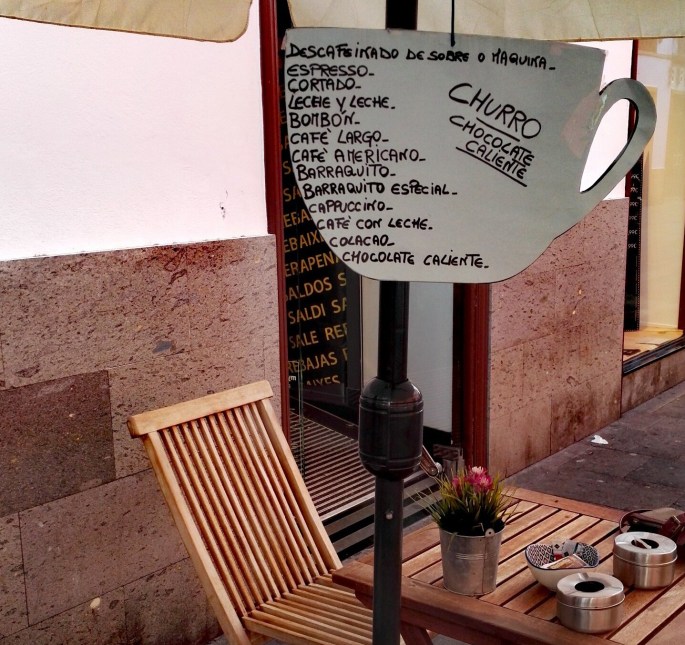 DESCAFEINADO DE SOBRE O MAQUINA_
ESPRESSO_
CORTADO_
LECHE Y LECHE_
BOMBÓN_
CAFÈ LARGO_
CAFÈ AMERICANO_
BARRAQUITO_
BARRAQUITO ESPECIAL_
CAPPUCCINO_
CAFÈ CON LECHE_
COLACAO_
CHOCOLATE CALIENTE_
CHURRO
CHOCOLATE
CALIENTE
SALDOS
SALDI
SALE
REBAJAS